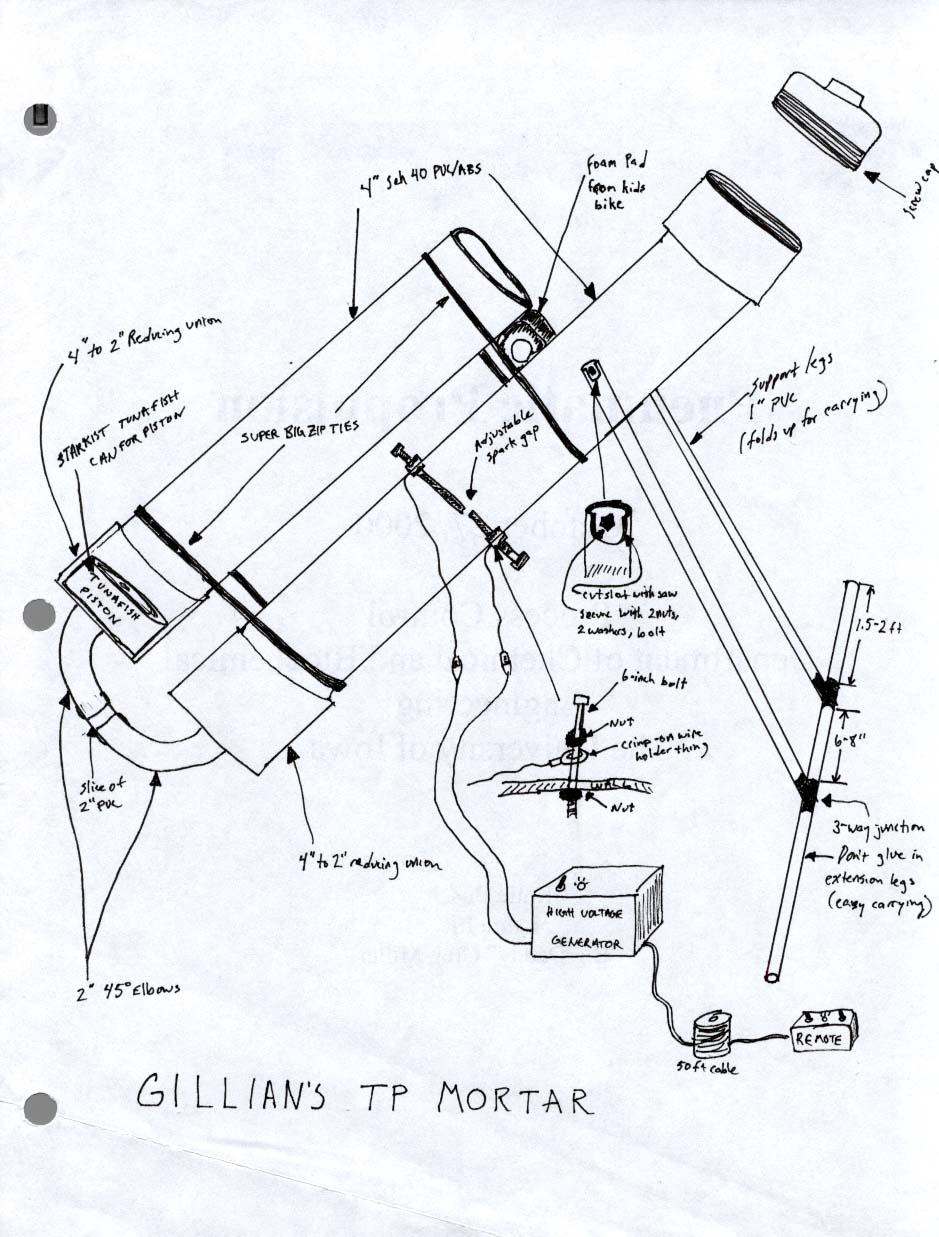 screw cap
foam pad
from kids
bike
4" Sch 40 PVC/ABS
4" to 2" Reducing union
STARKIST TUNAFISH
CAN FOR PISTON
SUPER BIG ZIP TIES
Adjustable
spark gap
Support legs
1" PVC
(folds up for carrying)
TUNAFISH
PISTON
cut slot with saw
secure with 2 nuts,
2 washers, bolt
1.5-2 ft
6-inch bolt
Nut
crimp-on wire
holder thing
WALL
Nut
6-8"
slice of
2" PVC
3-way junction
Don't glue in
extension legs
(easy carrying)
4" to 2" reducing union
HIGH VOLTAGE
GENERATOR
2" 45° Elbows
REMOTE
50 ft cable
GILLIAN'S TP MORTAR